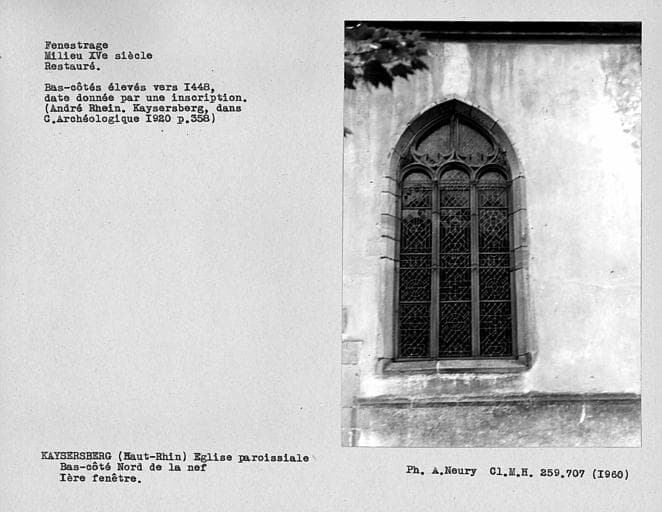 Fenestrage
Milieu XVe siècle
Restauré.
Bas-côtés élevés vers I448,
date donnée par une inscription.
(André Rhein. Kaysersberg, dans
C.Archéologique I920 p.358)
KAYSERSBERG (Haut-Rhin) Eglise paroissiale
Bas-côté Nord de la nef
Ière fenêtre.
Ph. A.Neury Cl.M.H. 259.707 (I960)